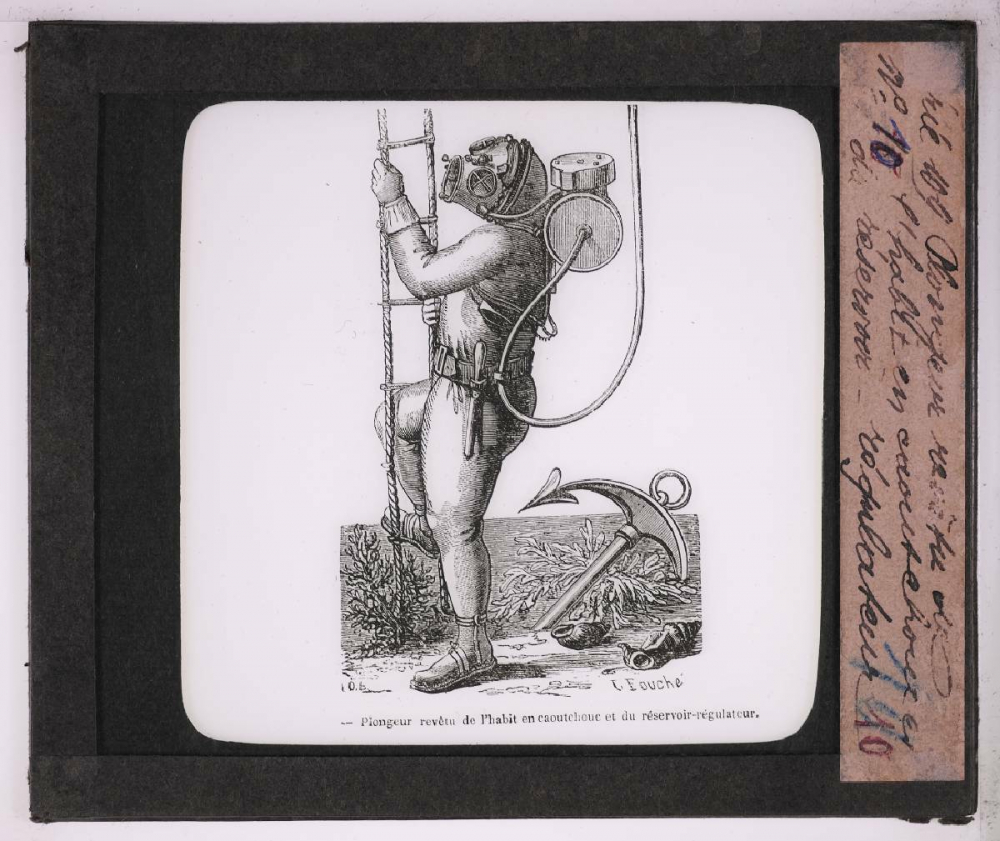 O.B.
C. Fouché
— Plongeur revêtu de l'habit en caoutchouc et du réservoir-régulateur.
Plongeur revêtu de
No 10 l'habit en caoutchouc et
du reservoir - régulateur 10